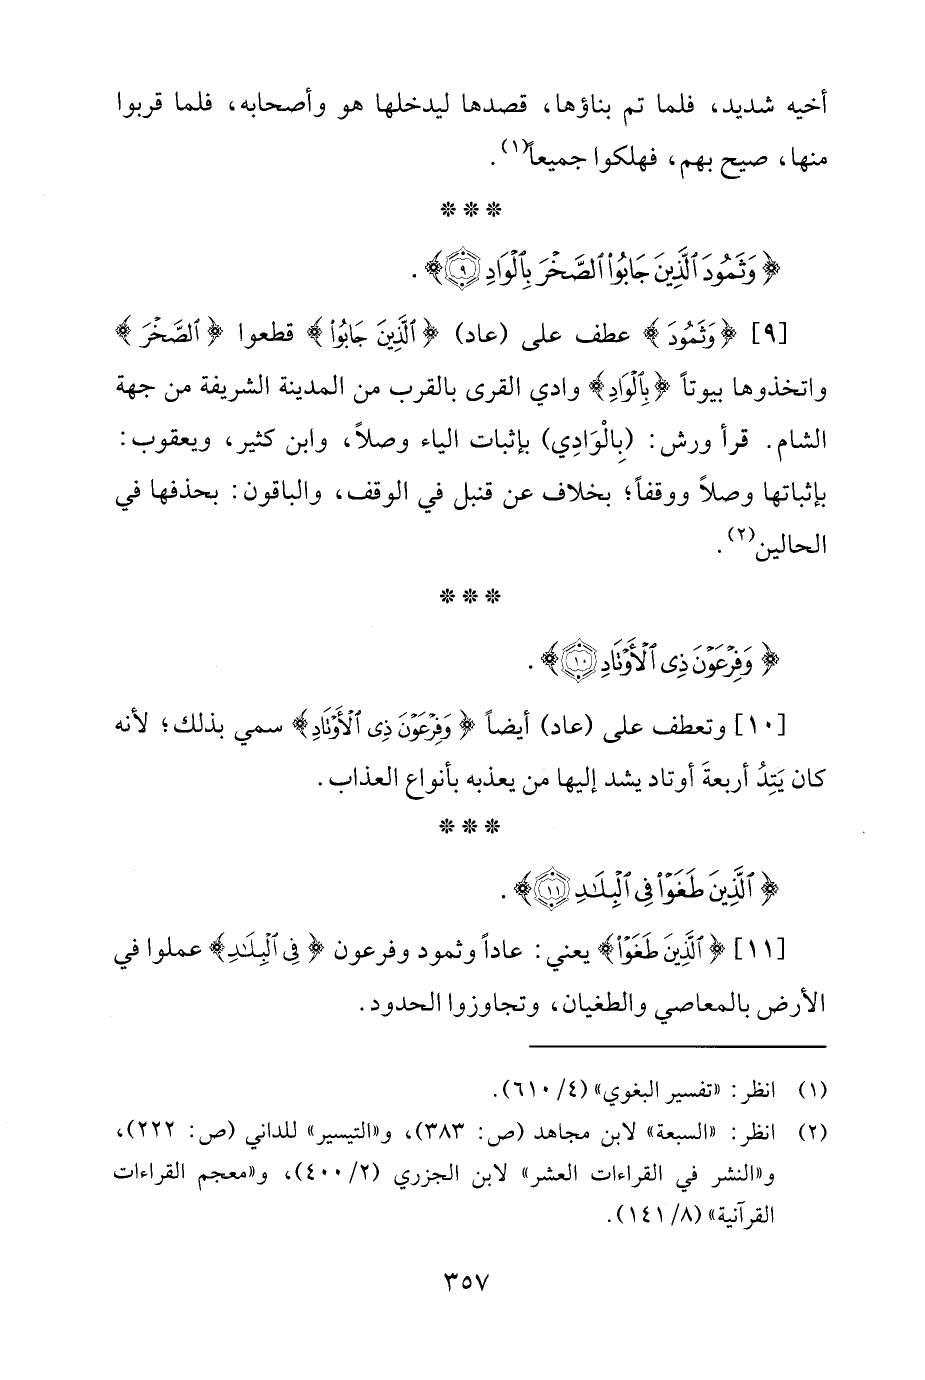 أخيه شديد، فلما تم بناؤها، قصدها ليدخلها هو وأصحابه، فلما قربوا
منها، صيح بهم، فهلكوا جميعاً(١).
* * *
﴿وَثَمُودَ ٱلَّذِينَ جَابُوا۟ ٱلصَّخْرَ بِٱلْوَادِ ٩﴾.
[٩] ﴿وَثَمُودَ﴾ عطف على (عاد) ﴿ٱلَّذِينَ جَابُوا۟﴾ قطعوا ﴿ٱلصَّخْرَ﴾
واتخذوها بيوتاً ﴿بِٱلْوَادِ﴾ وادي القرى بالقرب من المدينة الشريفة من جهة
الشام. قرأ ورش: (بِالْوَادِي) بإثبات الياء وصلاً، وابن كثير، ويعقوب:
بإثباتها وصلاً ووقفاً؛ بخلاف عن قنبل في الوقف، والباقون: بحذفها في
الحالين(٢).
* * *
﴿وَفِرْعَوْنَ ذِى ٱلْأَوْتَادِ ١٠﴾.
[١٠] وتعطف على (عاد) أيضاً ﴿وَفِرْعَوْنَ ذِى ٱلْأَوْتَادِ﴾ سمي بذلك؛ لأنه
كان يَتِدُ أربعةَ أوتاد يشد إليها من يعذبه بأنواع العذاب.
* * *
﴿ٱلَّذِينَ طَغَوْا۟ فِى ٱلْبِلَـٰدِ ١١﴾.
[١١] ﴿ٱلَّذِينَ طَغَوْا۟﴾ يعني: عاداً وثمود وفرعون ﴿فِى ٱلْبِلَـٰدِ﴾ عملوا في
الأرض بالمعاصي والطغيان، وتجاوزوا الحدود.
(١) انظر: «تفسير البغوي» (٤/ ٦١٠).
(٢) انظر: «السبعة» لابن مجاهد (ص: ٣٨٣)، و«التيسير» للداني (ص: ٢٢٢)،
و«النشر في القراءات العشر» لابن الجزري (٢/ ٤٠٠)، و«معجم القراءات
القرآنية» (٨/ ١٤١).
٣٥٧